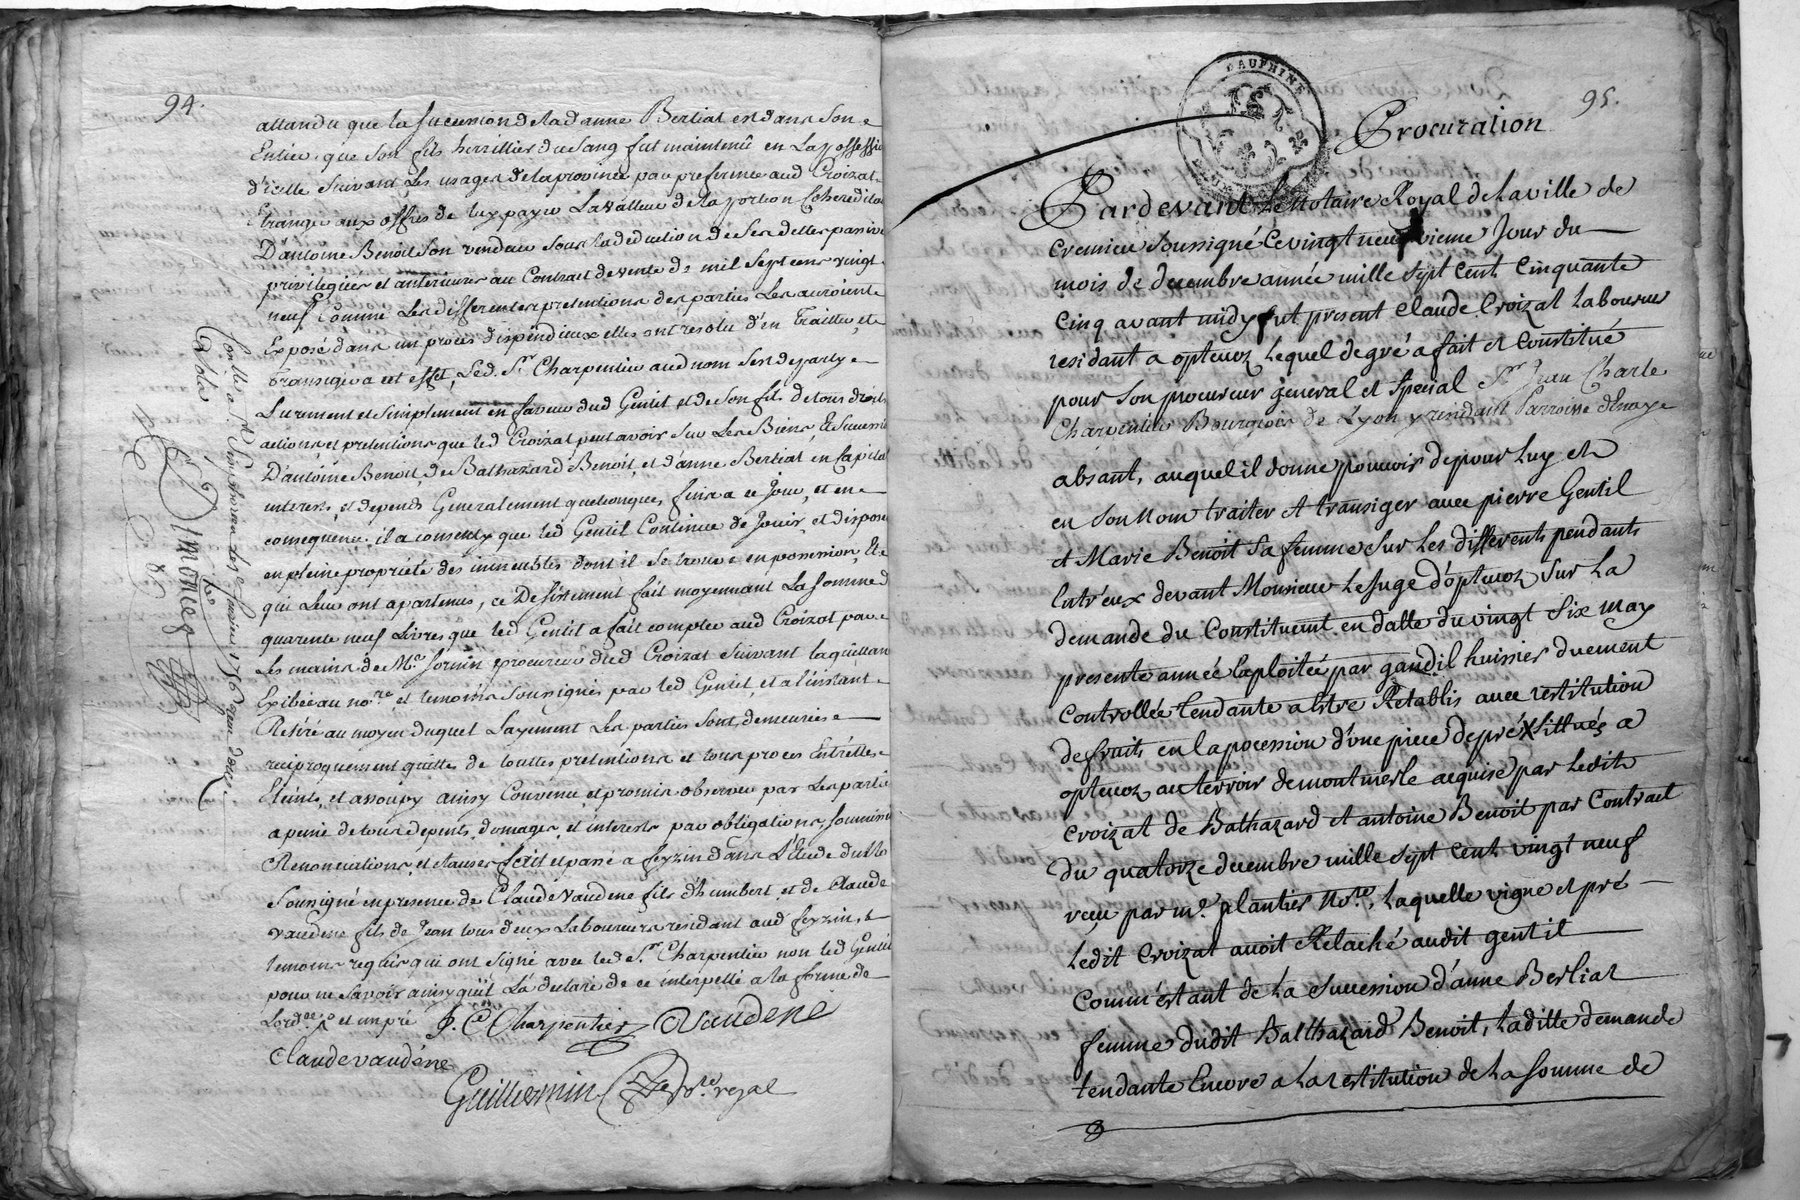 94.
attandu que la succession de ladanne Berliat est dans son
Entier, que son fils herittier du sang fut maintenû en La possessi
d'icelle suivant Les usages de la province par preference aud Croizat
Etranger aux offres de luy payer La valleur de la portion Cohereditai
D'antoine Benoit son vendeur sous la deduction de ses dettes passive
privilegiées et anterieures au Contract de vente de mil sept cens vingt
neuf Comme Les differentes pretentions des parties Les auroient
Exposé dans un procès dispendieux elles ont resolu d'en Traitter, et
transiger a cet effet, Led. Sr. Charpentier aud nom s'est departy
Purement et simplement en faveur dud Gentil et de son fils de tous droits
actions, et pretentions que led Croizat peut avoir sur Les Biens, Et Successi
D'antoine Benoit, de Balthazard Benoit, et d'anne Berliat en Capital
interests, et depends Generalement quelconques, finis a ce Jour, et en
consequence, il a consenty que led Gentil Continue de Jouir, et dispose
en pleine proprieté des immeubles dont il se trouve en possession, Et
qui Leur ont apartenus, ce Desistement fait moyennant La somme d
quarente neuf Livres que led Gentil a fait compter aud Croizat par
les mains de Me. Jornin procureur dud Croizat suivant la quittan
Exibée au nore. et temoins soussignés par led Gentil, et a l'instant
Retiré au moyen duquel Payement Les parties sont demeurées
reciproquement quittes de touttes pretentions et tous proces Entr'elles
Eteints, et assoupy ainsy Convenu et promis observer par Les partie
a peine de tous depents, domages, et interests par obligations, soumissi
Renonciations, et clauses fait et passé a feyzin dans L'Etude du No
soussigné en presence de Claude vaudene fils d'humbert et de Claude
vaudene fils de Jean tous deux Laboureurs residant aud feyzin,
temoins requis qui ont signé avec led Sr. Charpentier non led Gentil
pour ne savoir ainsy qu'il L'a declaré de ce interpellé a la forme de
Lordce. et un pré J. Ce Charpentier CVaudene
Claudevaudéne
Guillermin Nre. regal
1756
Simonet
95.
DAUPHINE
Procuration
Pardevant Le Notaire Royal de la ville de
Cremieu soussigné Ce vingt neufvieme Jour du
mois de decembre année mille sept cent cinquante
cinq avant midy fut present Claude Croizat Laboureur
residant a optevoz Lequel de gré a fait et Constitué
pour son procureur general et special Sr. Jean Charle
Charpentier Bourgeois de Lyon y residant Parroisse d'Enay
absant, auquel il donne pouvoir de pour Luy et
en son nom traiter et transiger avec pierre Gentil
et Marie Benoit sa femme sur Les differents pendants
Entr'eux devant Monsieur Le Juge d'optevoz sur La
demande du Constituent en datte du vingt six may
presente année Exploitée par gandil huissier duement
Controllée tendante a Estre Retablis avec restitution
de fruits en la pocession d'une piece de pré X sittués a
optevoz, au terroir de montmerle acquise par Ledit
croizat de Balthazard et antoine Benoit par Contract
du quatorze decembre mille sept cent vingt neuf
reçu par me. plantier Nore. Laquelle vigne et pré
Ledit Croizat avoit Relaché audit gentil
Comm'estant de La succession d'anne Berliat
femme dudit Balthazard Benoit, Ladille demande
tendante Encore a La restitution de La somme de